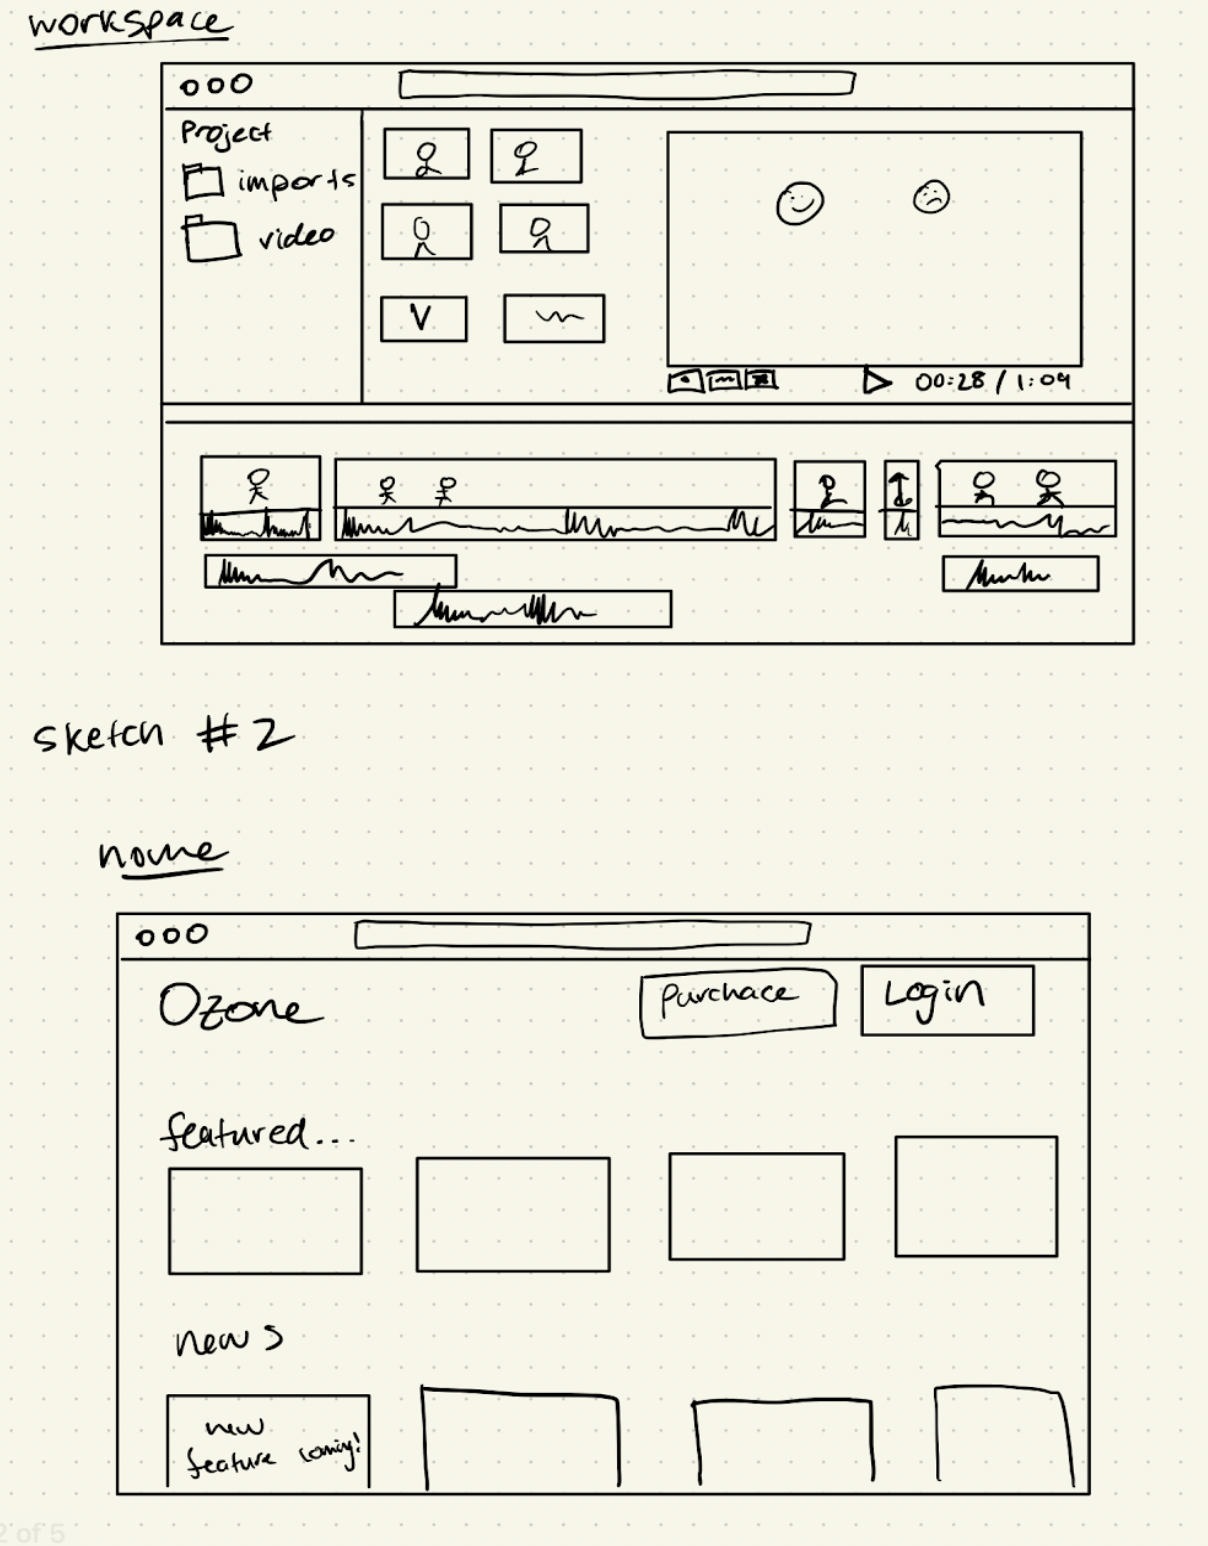 workspace
Project
imports
video
V
00:28 / 1:09
sketch #2
home
Ozone
Purchace
Login
featured...
news
new
feature coming!
2 of 5